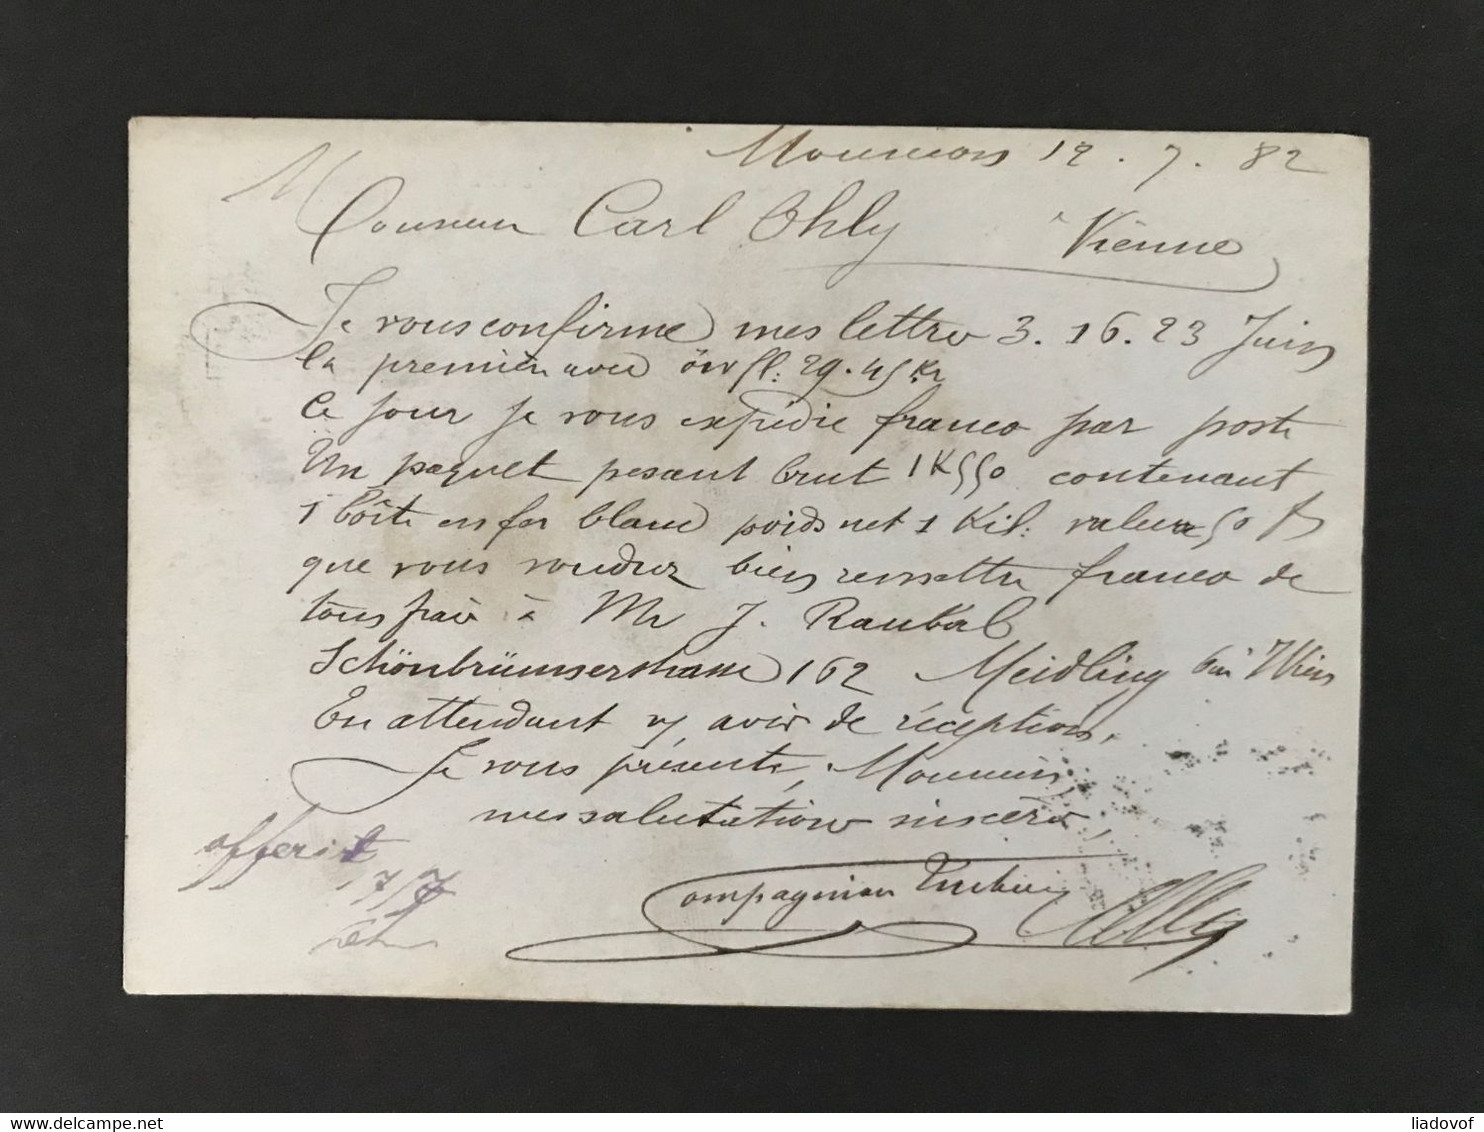 12 . 7 . 82
Monsieur Carl Ohly à Vienne
Je vous confirme mes lettres 3. 16. 23 Juin
la première avec öw fl: 29.45 Kr
Ce jour je vous expédie franco par poste
Un paquet pesant brut 1 K 550 contenant
1 boîte en fer blanc poids net 1 Kil: valeur 50 fs
que vous voudrez bien remettre franco de
tous frais à Mr J. Raukal
Schönbrünnserstrasse 162 Meidling bei Wien
En attendant avis de réception,
Je vous présente, Monsieur,
mes salutations sincères,
offerit
17/7
delcampe.net
liadovof